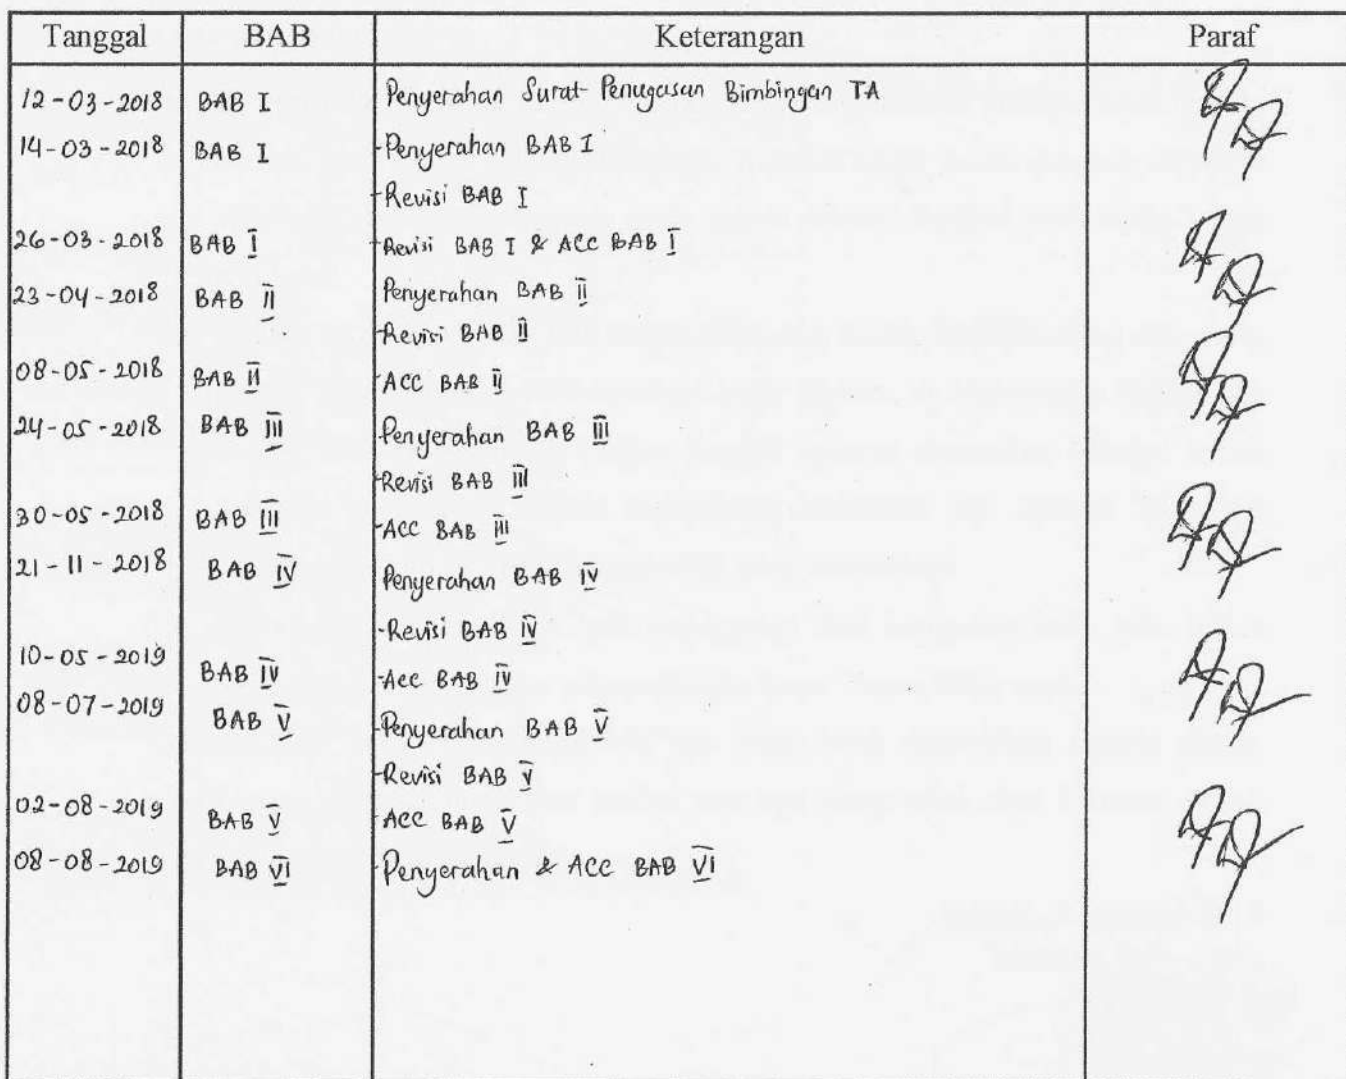 Tanggal BAB Keterangan Paraf
12-03-2018 BAB I Penyerahan Surat Penugasan Bimbingan TA
14-03-2018 BAB I -Penyerahan BAB I
-Revisi BAB I
26-03-2018 BAB I -Revisi BAB I & ACC BAB I
23-04-2018 BAB II Penyerahan BAB II
-Revisi BAB II
08-05-2018 BAB II -ACC BAB II
24-05-2018 BAB III -Penyerahan BAB III
-Revisi BAB III
30-05-2018 BAB III -ACC BAB III
21-11-2018 BAB IV Penyerahan BAB IV
-Revisi BAB IV
10-05-2019 BAB IV -Acc BAB IV
08-07-2019 BAB V -Penyerahan BAB V
-Revisi BAB V
02-08-2019 BAB V ACC BAB V
08-08-2019 BAB VI -Penyerahan & ACC BAB VI